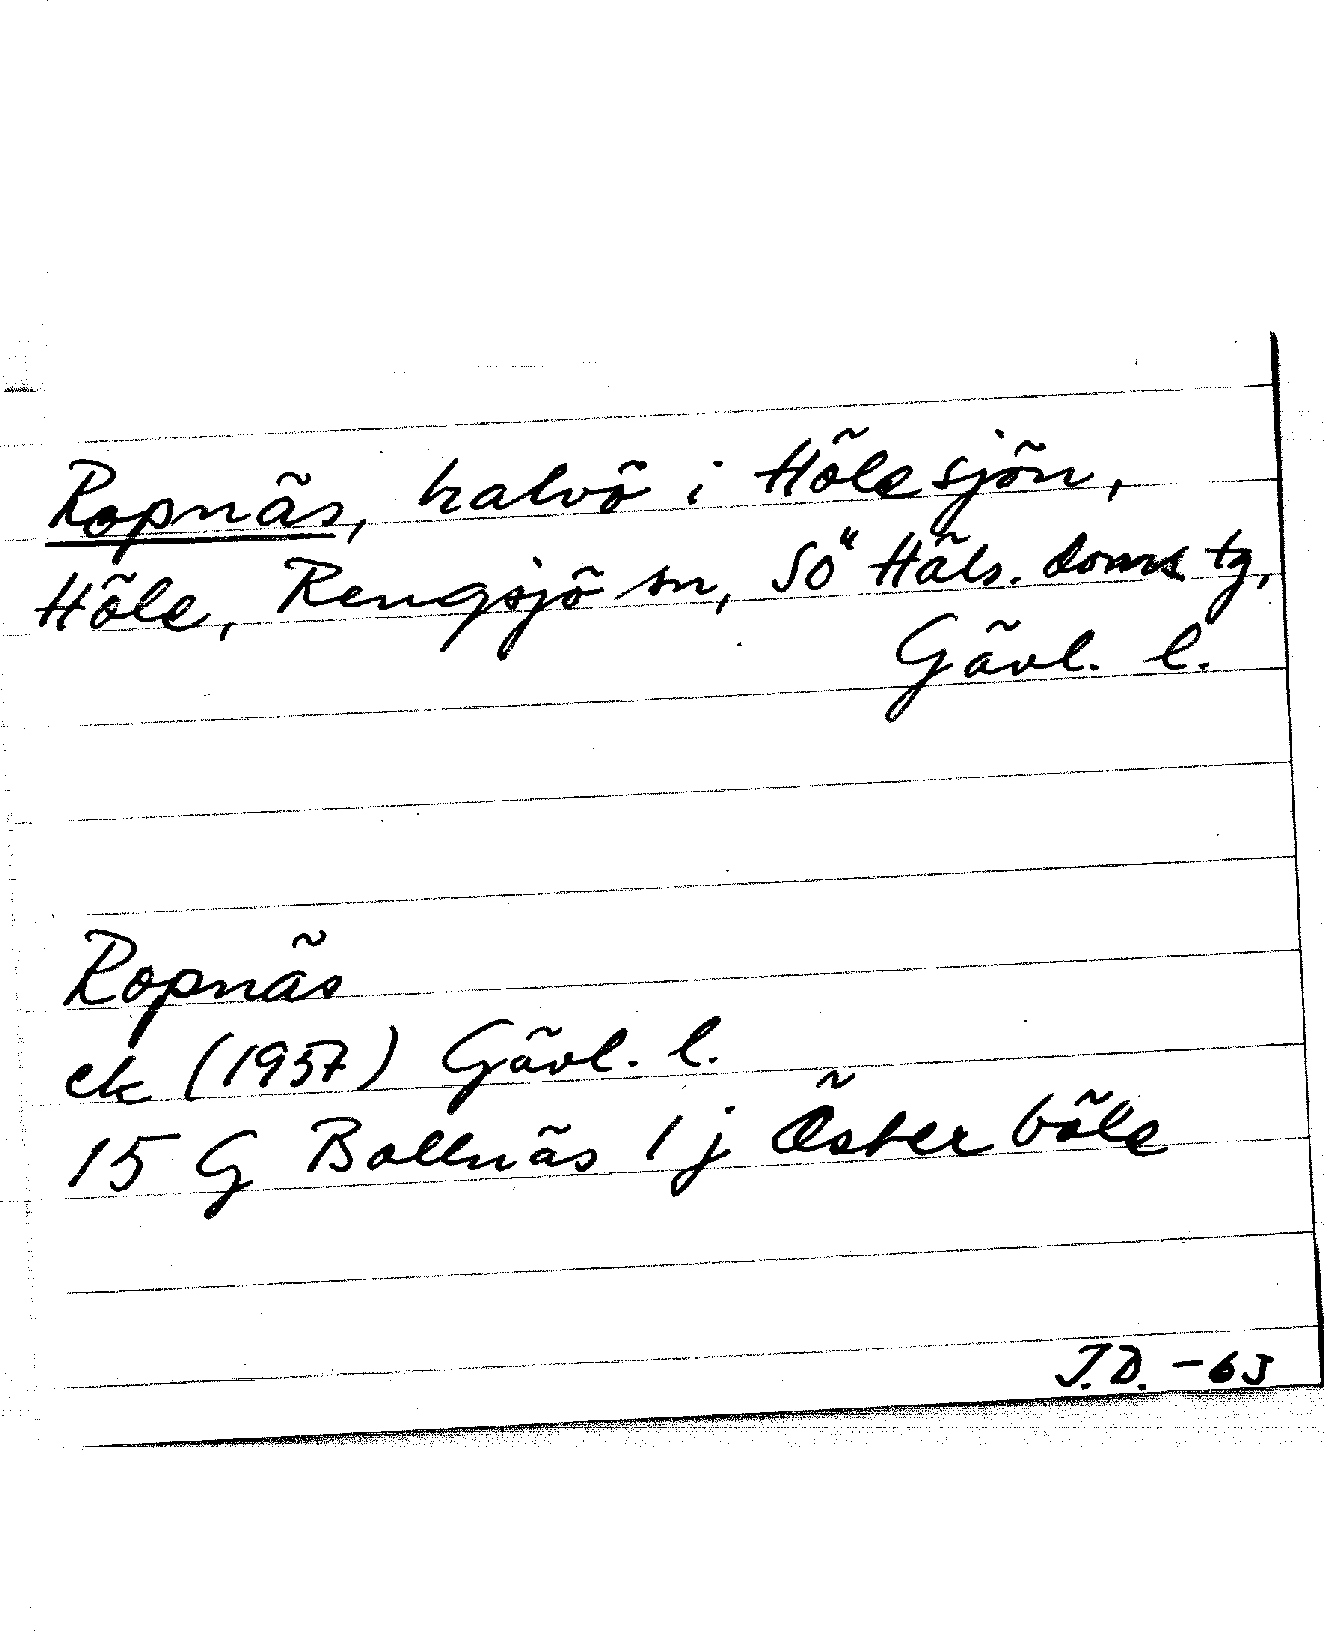 Ropnäs, halvö i Hölesjön,
Höle, Rengsjö sn, Sö Häls. doms tg,
Gävl. l.
Ropnäs
ek (1957) Gävl. l.
15 G Bollnäs 1 j Österböle
J.D. -63